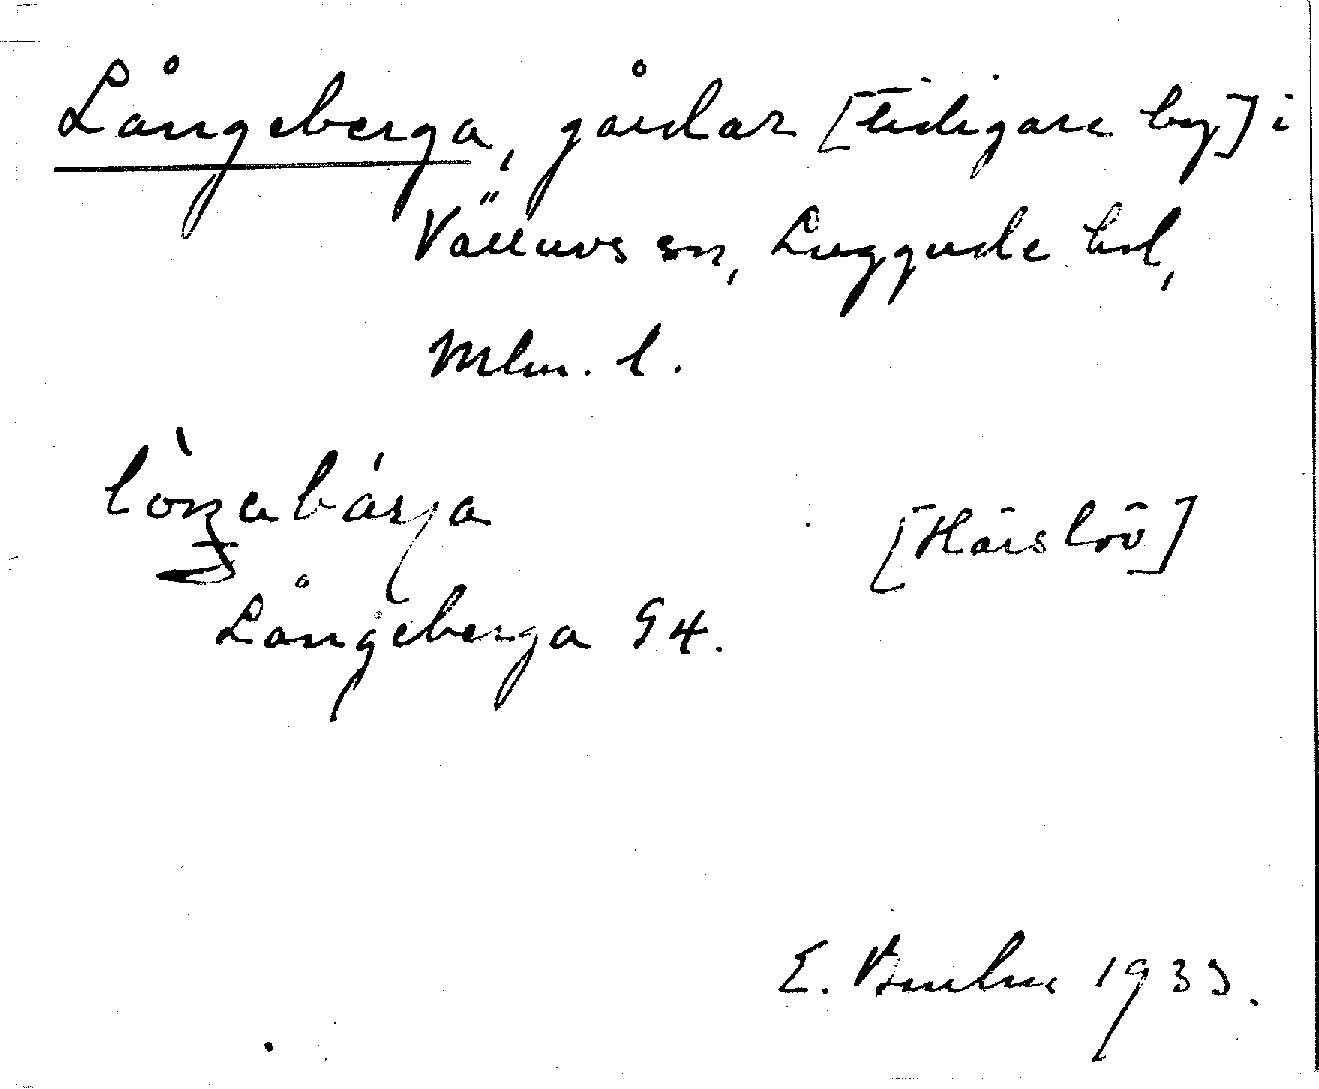 Långeberga, gårdar [tidigare by] i
Välluvs sn, Luggude hd,
Mlm. l.
[Härslöv]
Långeberga G4.
E. 1933.